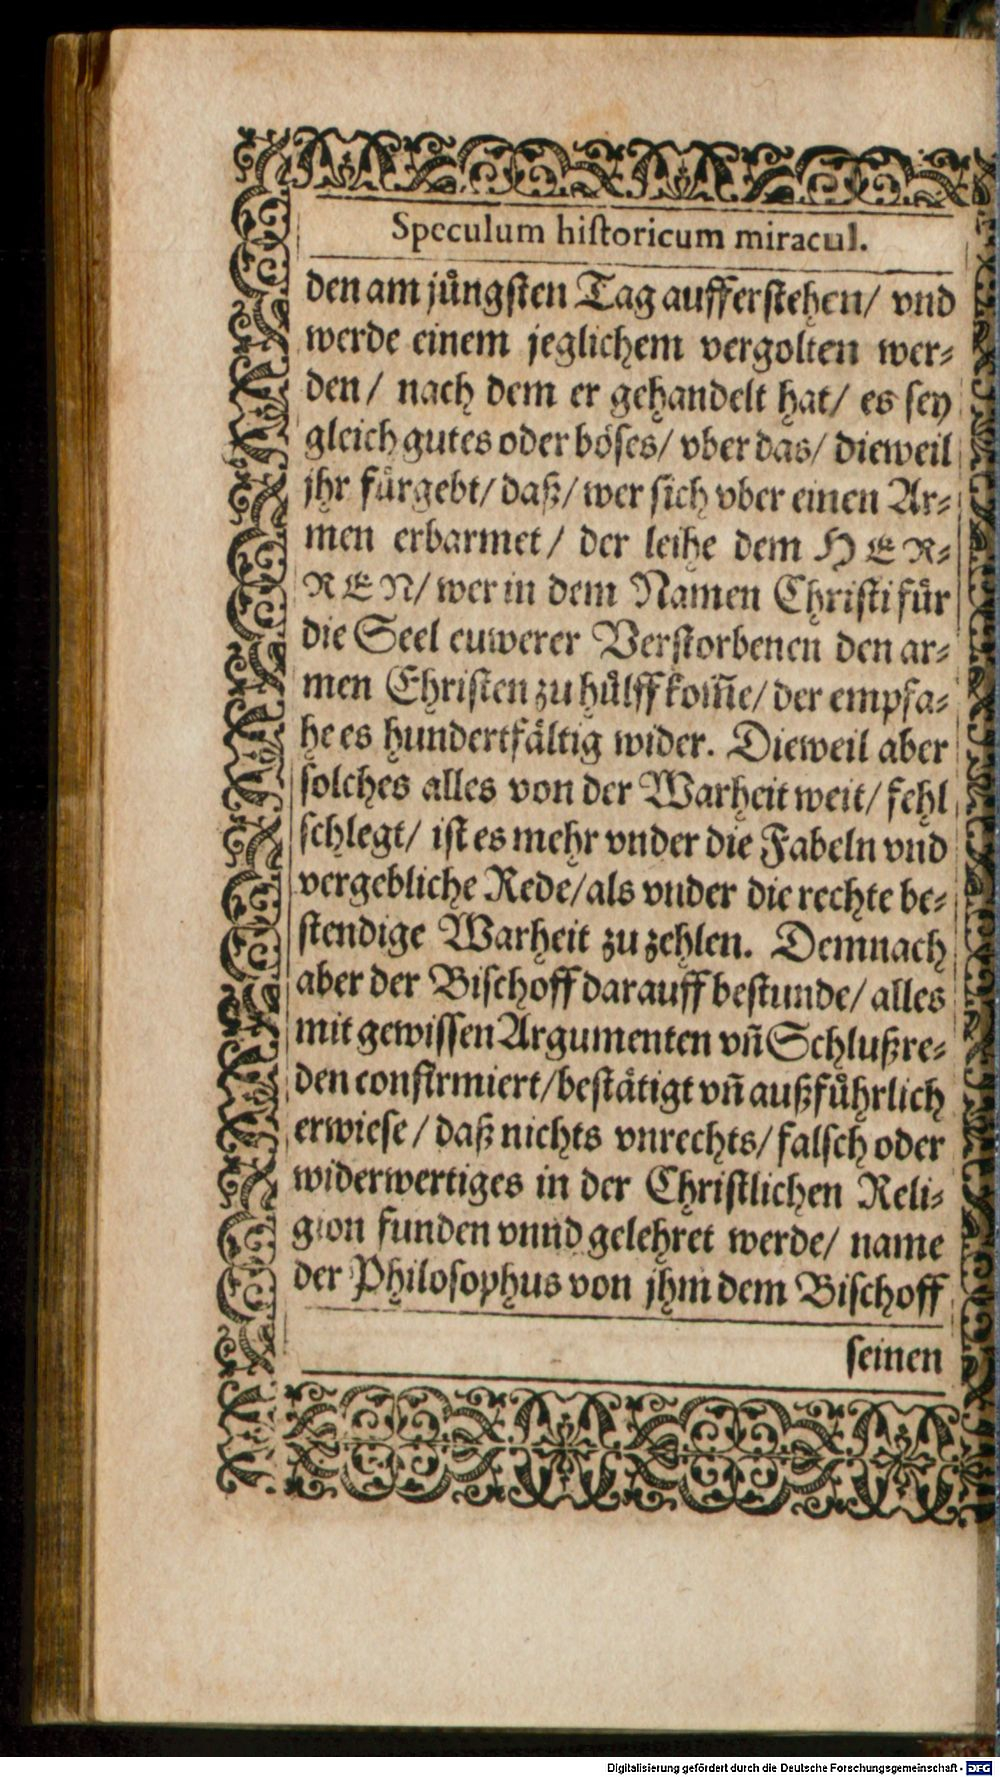 Speculum historicum miracul.
den am jůngsten Tag aufferstehen/ vnd
werde einem jeglichem vergolten wer⸗
den/ nach dem er gehandelt hat/ es sey
gleich gutes oder bőses/ vber das/ dieweil
jhr fůrgebt/ daß/ wer sich vber einen Ar⸗
men erbarmet/ der leihe dem HER⸗
REN/ wer in dem Namen Christi fůr
die Seel euwerer Verstorbenen den ar⸗
men Christen zu hůlff kom̃e/ der empfa⸗
he es hundertfåltig wider. Dieweil aber
solches alles von der Warheit weit/ fehl
schlegt/ ist es mehr vnder die Fabeln vnd
vergebliche Rede/ als vnder die rechte be⸗
stendige Warheit zu zehlen. Demnach
aber der Bischoff darauff bestunde/ alles
mit gewissen Argumenten vñ Schlußre⸗
den confirmiert/ beståtigt vñ außfůhrlich
erwiese/ daß nichts vnrechts/ falsch oder
widerwertiges in der Christlichen Reli⸗
gion funden vnnd gelehret werde/ name
der Philosophus von jhm dem Bischoff
seinen
Digitalisierung gefördert durch die Deutsche Forschungsgemeinschaft - DFG